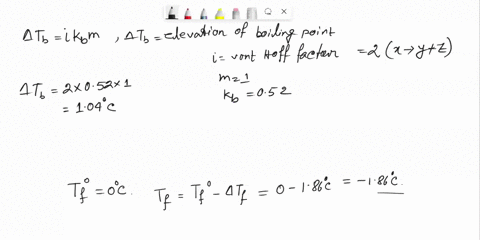 ΔT_b = i k_b m , ΔT_b = elevation of boiling point
i = vant Hoff factor = 2 (x → y + z)
m = 1
ΔT_b = 2 × 0.52 × 1
k_b = 0.52
= 1.04°C
T_f° = 0°C. T_f = T_f° - ΔT_f = 0 - 1.86°C = -1.86°C.